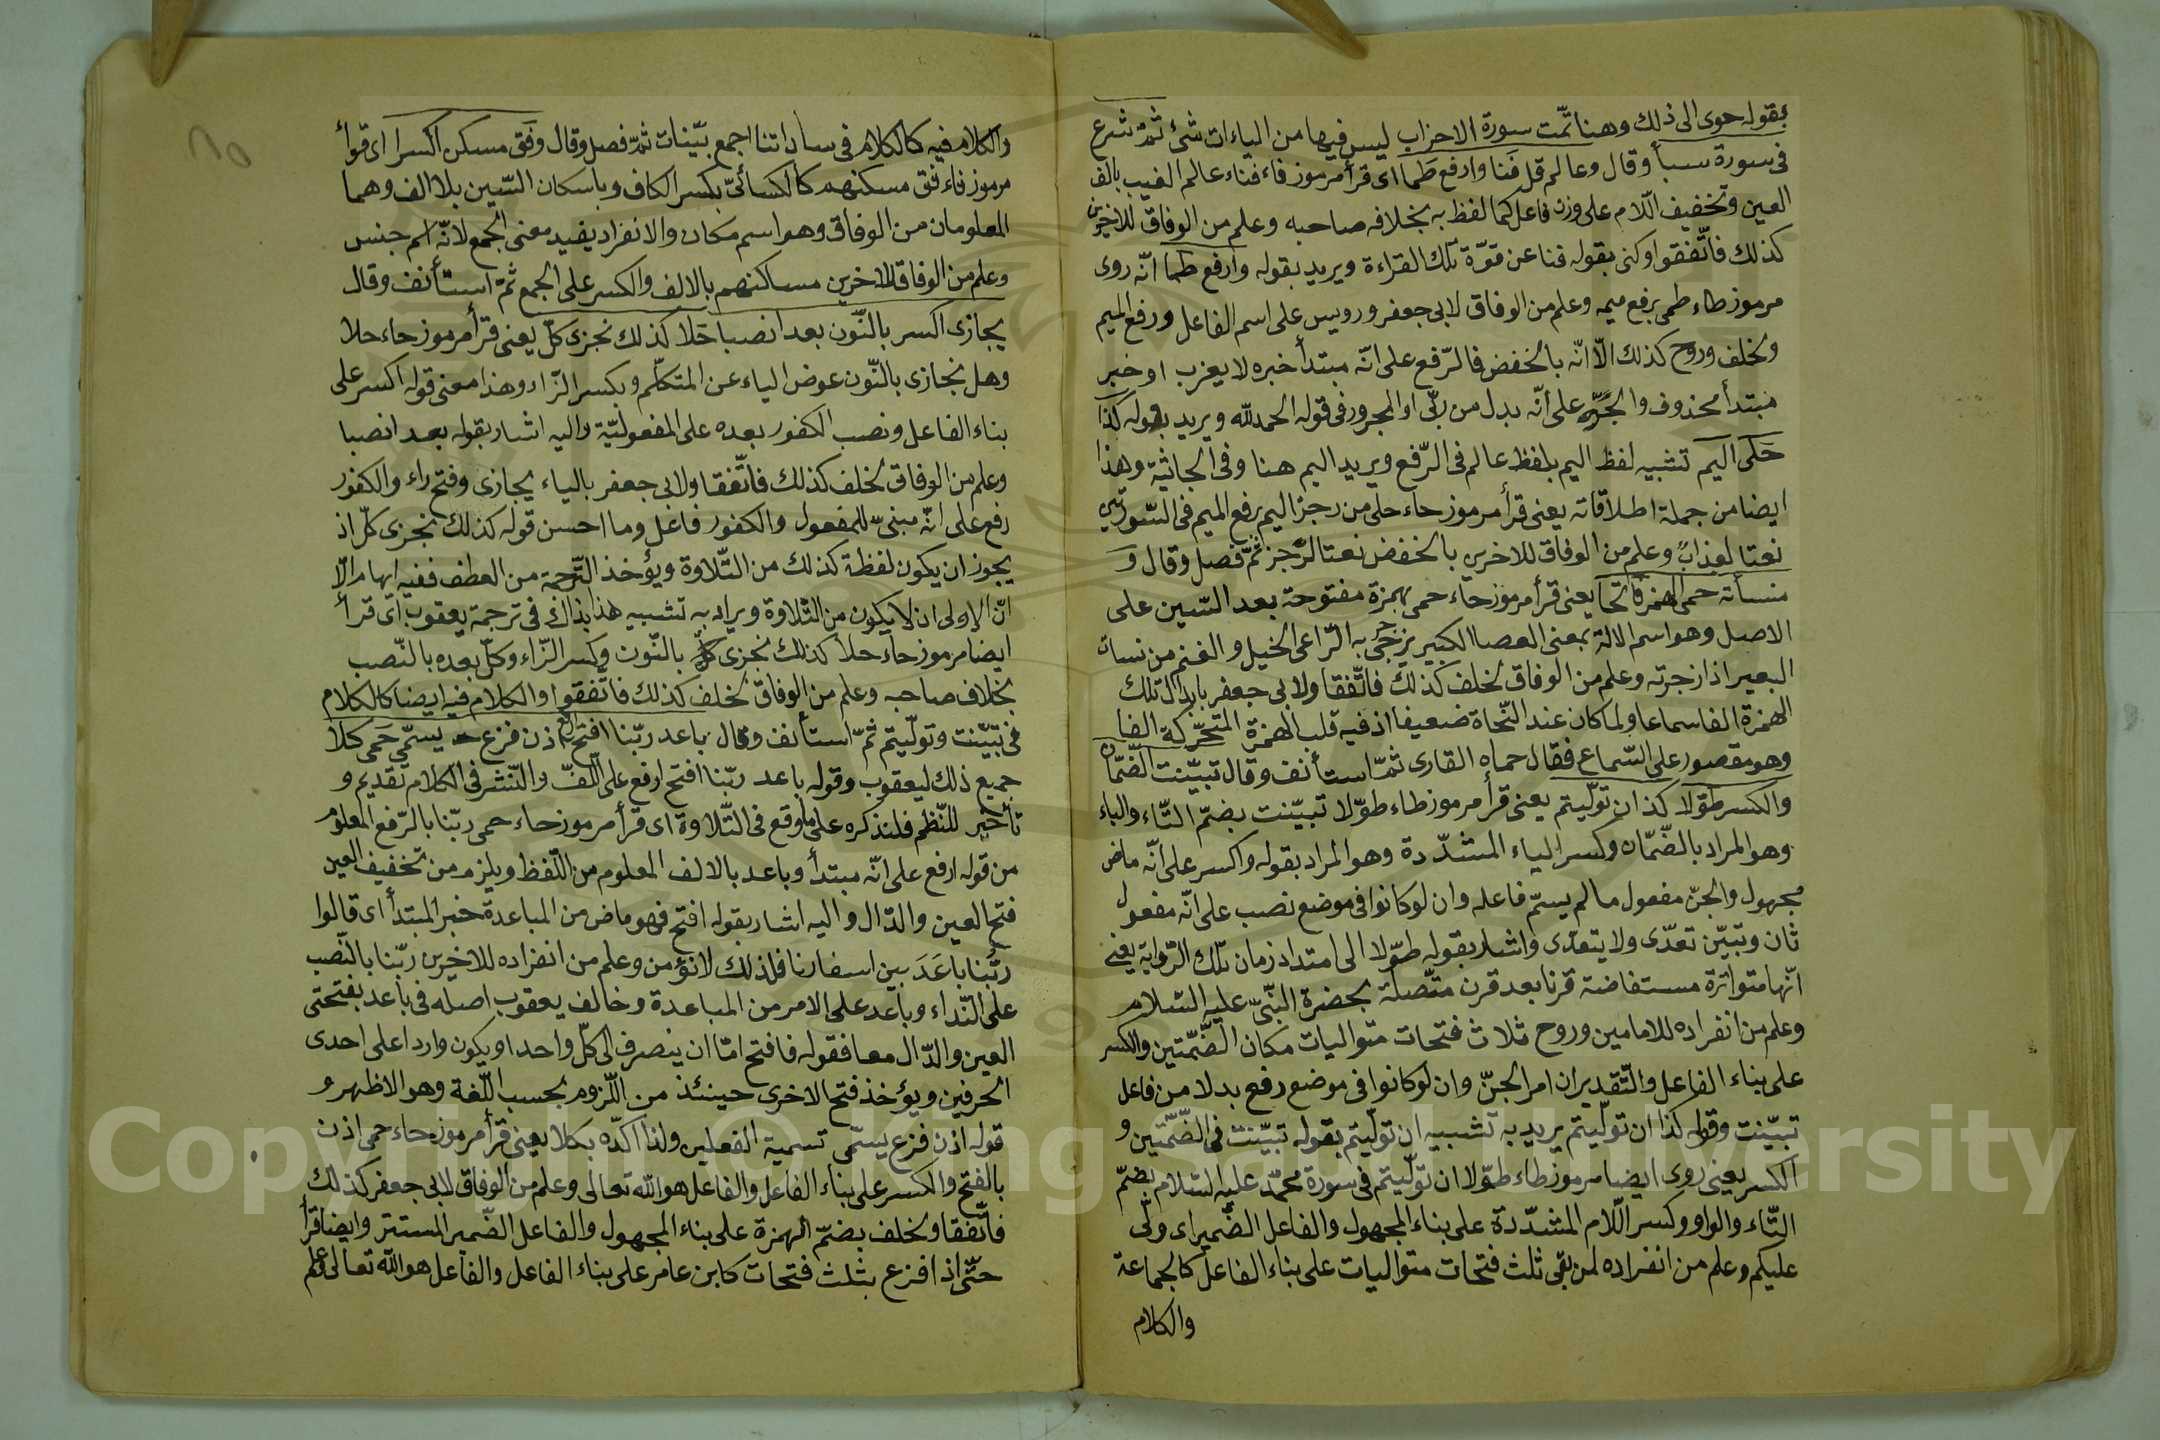 بقوله حوى الى ذلك وهنا تمّت سورة الاحزاب ليس فيها من الياءات شئ ثمّ شرع
فى سورة سبأ وقال وعالم قل فنا وارفع طما اى قرأ مرموز فاء فناء عالم الغيب بالف
العين وتخفيف اللّام على وزن فاعل كما لفظ به بخلافه صاحبه وعلم من الوفاق للاخرين
كذلك فاتّفقوا وكنى بقوله فنا عن قوّة تلك القراءة ويريد بقوله وارفع طما انّه روى
مرموز طاء طمى برفع ميمه وعلم من الوفاق لابى جعفر ورويس على اسم الفاعل ورفع الميم
ولخلف وروح كذلك الّا انّه بالخفض فالرّفع على انّه مبتدأ خبره لا يعزب او خبر
مبتدأ محذوف والجرّ على انّه بدل من ربّى او المجرور فى قوله الحمد لله ويريد بقوله كذا
حلى اليم تشبيه لفظ اليم بلفظ عالم فى الرّفع ويريد اليم هنا وفى الجاثية وهذا
ايضا من جملة اطلاقاته يعنى قرأ مرموز حاء حلى من رجز اليم برفع الميم فى السّورتين
نعتا لعذابٌ وعلم من الوفاق للاخرين بالخفض نعتا لرجز ثمّ فصل وقال و
منسأته حمى الهمز فاتحا يعنى قرأ مرموز حاء حمى بهمزة مفتوحة بعد السّين على
الاصل وهو اسم الالة بمعنى العصا الكبير يزجى به الرّاعى الخيل والغنم من نسات
البعير اذا زجرته وعلم من الوفاق لخلف كذلك فاتّفقا ولابى جعفر بابدال تلك
الهمزة الفا سماعا ولما كان عند النّحاة ضعيفا اذ فيه قلب الهمزة المتحرّكة الفا
وهو مقصور على السّماع فقال حماه القارى ثمّ استأنف وقال تبيّنت الضّمّان
والكسر طوّلا كذ ان تولّيتم يعنى قرأ مرموز طاء طوّلا تبيّنت بضمّ التّاء والباء
وهو المراد بالضّمّان وكسر الياء المشدّدة وهو المراد بقوله واكسر على انّه ماض
مجهول والجنّ مفعول ما لم يسمّ فاعله وان لو كانوا فى موضع نصب على انّه مفعول
ثان وتبيّن تعدّى ولا يتعدّى واشار بقوله طوّلا الى امتداد زمان تلك الرّواية يعنى
انّها متواترة مستفاضة قرنا بعد قرن متّصلة بحضرة النّبىّ عليه السّلام
وعلم من انفراده للامامين وروح ثلاث فتحات متواليات مكان الضّمّتين والكسر
على بناء الفاعل والتّقدير ان امر الجنّ وان لو كانوا فى موضع رفع بدلا من فاعل
تبيّنت وقوله كذا ان تولّيتم يريد به تشبيه ان تولّيتم بقوله تبيّنت فى الضّمّتين و
الكسر يعنى روى ايضا مرموز طاء طوّلا ان تولّيتم فى سورة محمّد عليه السّلام بضمّ
التّاء والواو وكسر اللّام المشدّدة على بناء المجهول والفاعل الضّمير اى ولّى
عليكم وعلم من انفراده لمن بقى ثلث فتحات متواليات على بناء الفاعل كالجماعة
والكلام
والكلام فيه كالكلام فى ساداتنا اجمع بيّنات ثمّ فصل وقال وفق مسكن اكسرا اى قرأ
مرموز فاء فق مسكنهم كالكسائىّ بكسر الكاف وباسكان السّين بلا الف وهما
المعلومان من الوفاق وهو اسم مكان والانفراد يفيد معنى الجمع لانّه اسم جنس
وعلم من الوفاق للاخرين مساكنهم بالالف والكسر على الجمع ثمّ استأنف وقال
يجازى اكسر بالنّون بعد انصبا حلا كذلك نجزى كلّ يعنى قرأ مرموز حاء حلا
وهل نجازى بالنّون عوض الياء عن المتكلّم وبكسر الزّاء وهذا معنى قوله اكسر على
بناء الفاعل ونصب الكفور بعده على المفعوليّة واليه اشار بقوله بعد انصبا
وعلم من الوفاق لخلف كذلك فاتّفقا ولابى جعفر بالياء يجازى وفتح زاء والكفور
رفع على انّه مبنىّ للمفعول والكفور فاعل وما احسن قوله كذلك نجزى كلّ اذ
يجوز ان يكون لفظة كذلك من التّلاوة ويؤخذ التّرجمة من العطف ففيه ايهام الّا
انّ الاولى ان لا يكون من التّلاوة ويراد به تشبيه هذا بذاك فى ترجمة يعقوب اى قرأ
ايضا مرموز حاء حلا كذلك نجزى كلّ بالنّون وكسر الزّاء وكلّ بعده بالنّصب
بخلاف صاحبه وعلم من الوفاق لخلف كذلك فاتّفقوا والكلام فيه ايضا كالكلام
فى تبيّنت وتولّيتم ثمّ استأنف وقال باعد ربّنا افتح ارفع اذن فزع يسمّى حمى كلا
جميع ذلك ليعقوب وقوله باعد ربّنا افتح ارفع على اللّفّ والنّشر فى الكلام تقديم و
تأخير للنّظم فلنذكره على ما وقع فى التّلاوة اى قرأ مرموز حاء حمى ربّنا بالرّفع المعلوم
من قوله ارفع على انّه مبتدأ وباعد بالالف المعلوم من اللّفظ ويلزمه من تخفيف العين
فتح العين والدّال واليه اشار بقوله افتح فهو ماض من المباعدة خبر المبتدأ اى قالوا
ربّنا باعَدَ بين اسفارنا فلذلك لا نؤمن وعلم من انفراده للاخرين ربّنا بالنّصب
على النّداء وباعد على الامر من المباعدة وخالف يعقوب اصله فى باعد بفتحتى
العين والدّال معا فقوله فافتح امّا ان ينصرف الى كلّ واحد او يكون واردا على احدى
الحرفين ويؤخذ فتح الاخرى حينئذ من اللّزوم بحسب اللّغة وهو الاظهر و
قوله اذن فزع يسمّى تسمية الفعلين ولذا اكّده بكلا يعنى قرأ مرموز حاء حمى اذن
بالفتح والكسر على بناء الفاعل والفاعل هو الله تعالى وعلم من الوفاق لابى جعفر كذلك
فاتّفقا ولخلف بضمّ الهمزة على بناء المجهول والفاعل الضّمير المستتر وايضا قرأ
حتّى اذا فزع بثلث فتحات كابن عامر على بناء الفاعل والفاعل هو الله تعالى وعلم
Copyright © King Saud University